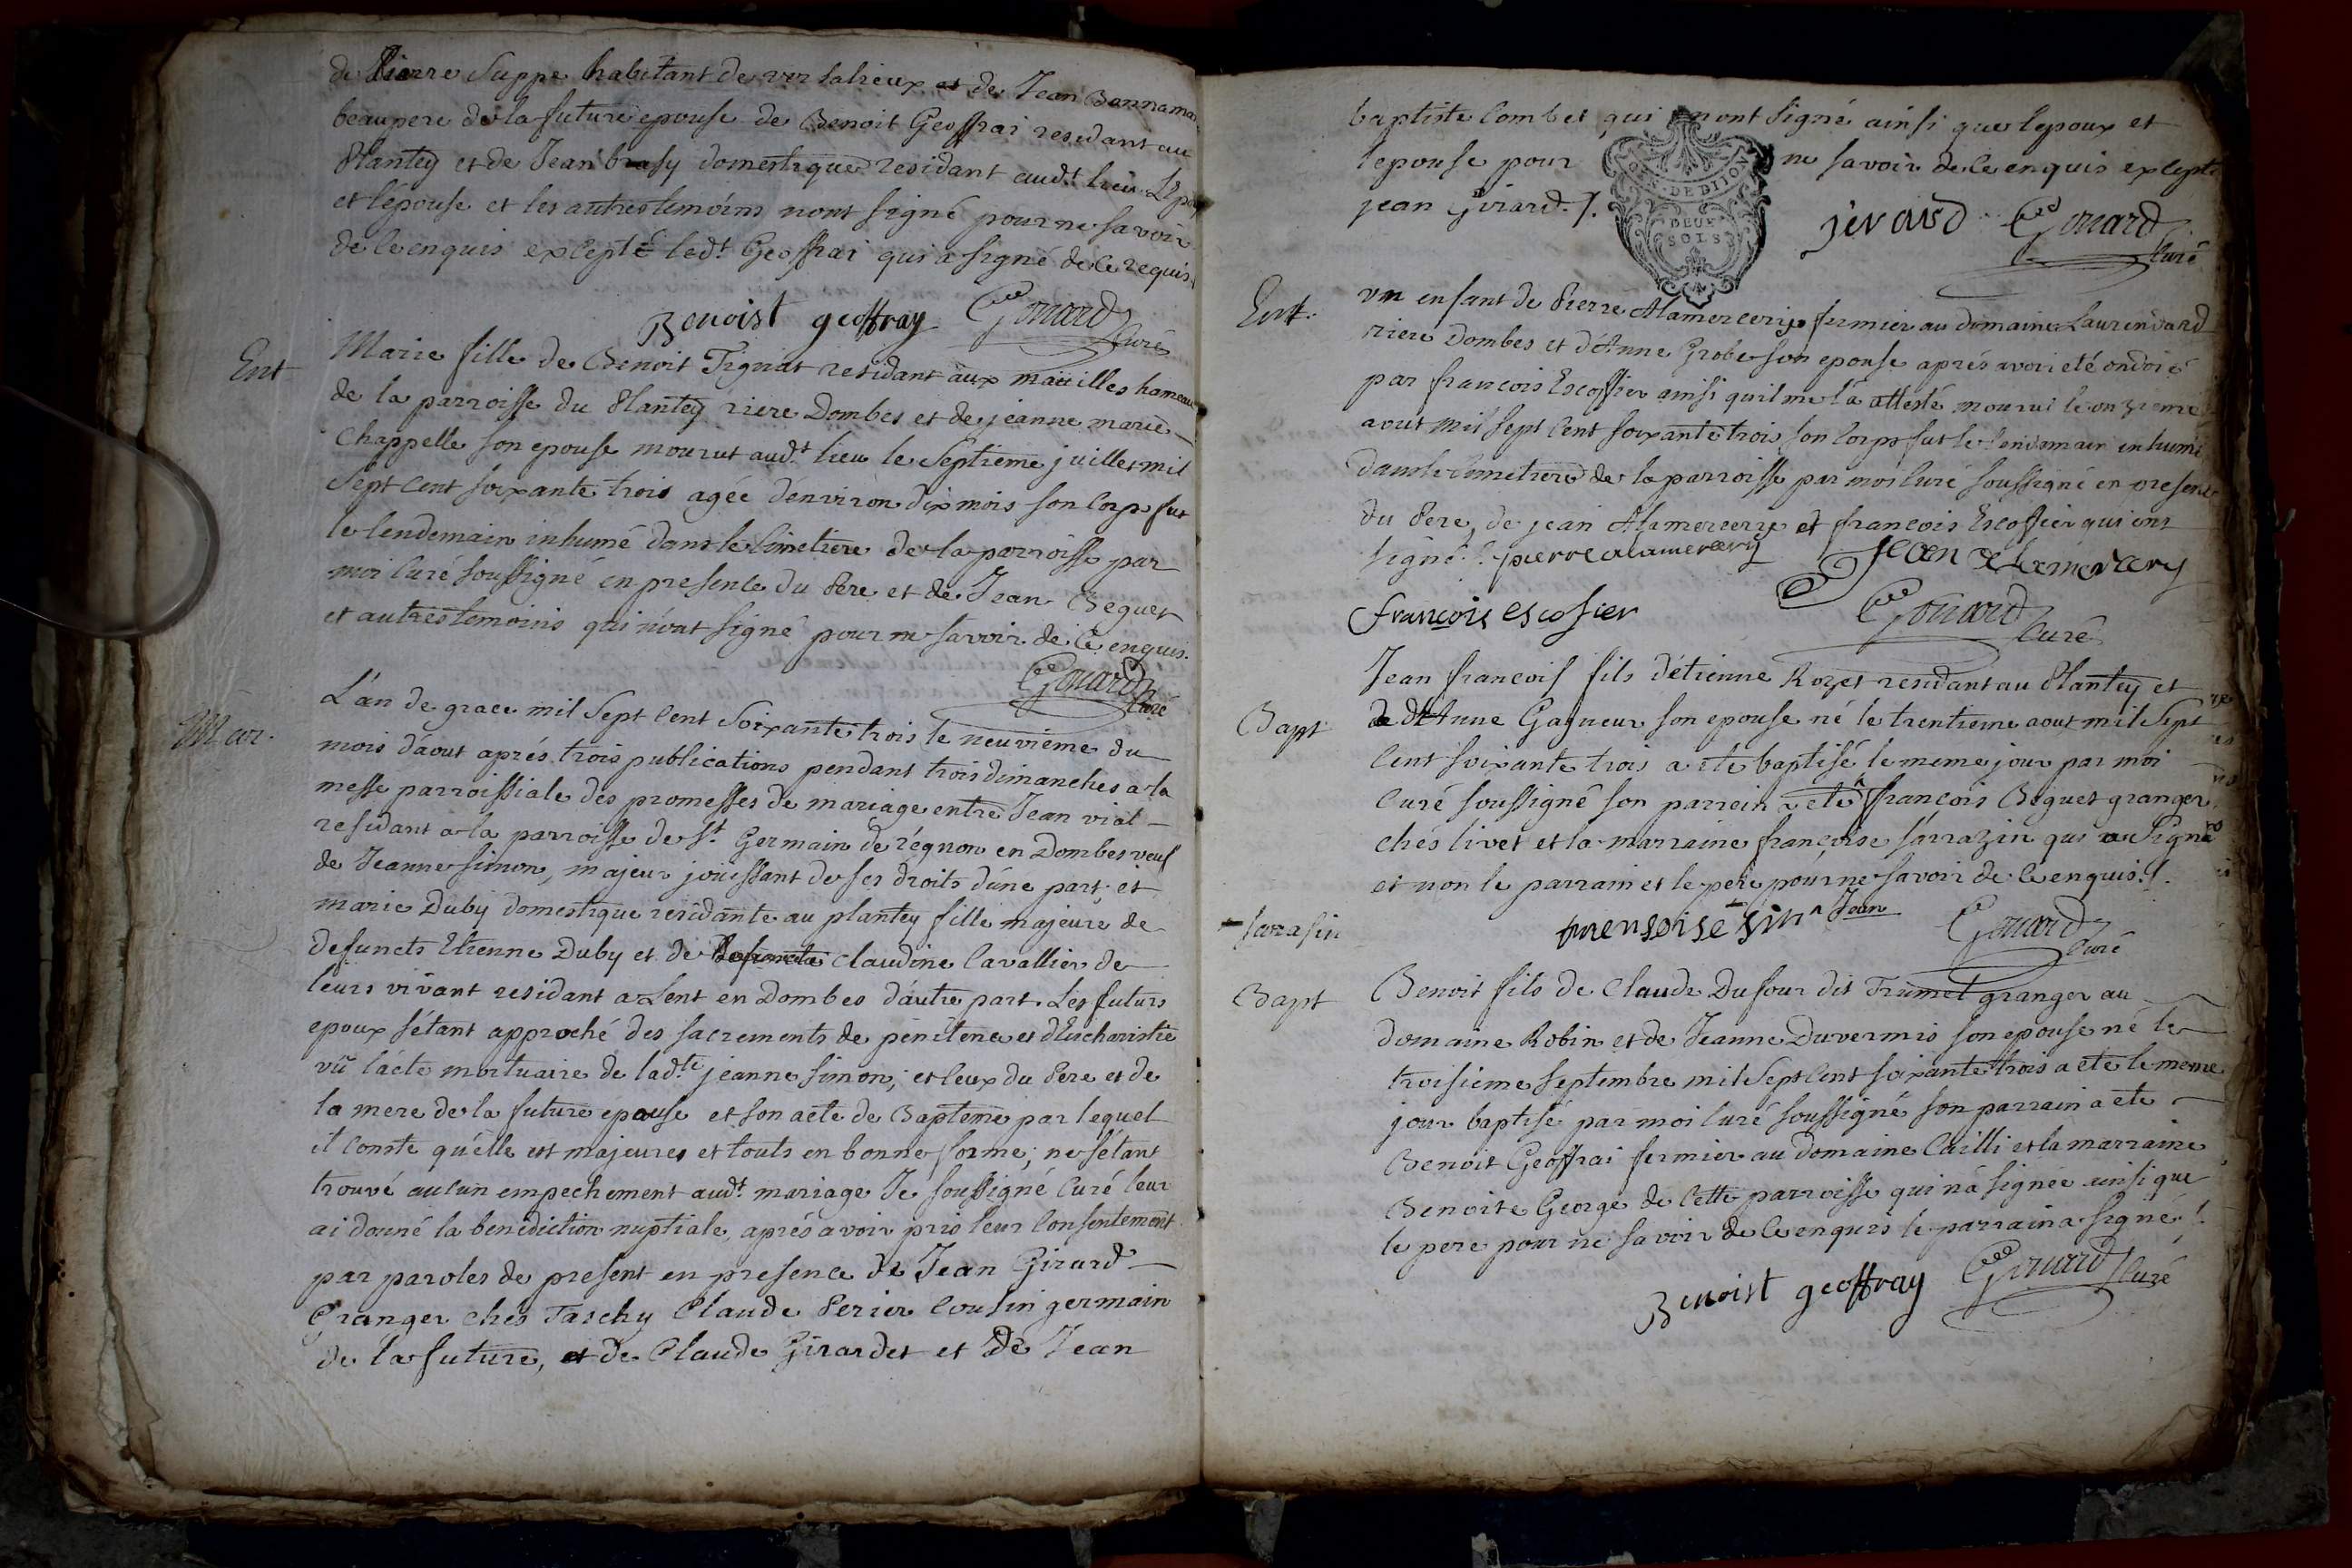 de Pierre Suppe habitant de versalieux et de Jean Bannama
beaupere de la future epouse de Benoit Geoffrai residant au
Plantey et de Jean brasy domestique residant aud.t lieu. L'Ep
et l'épouse et les autres temoins n'ont signé pour ne savoir
de ce enquis excepté led.t Geoffrai qui a signé de ce requis
Benoist geoffray Gonard Curé
Ent
Marie fille de Benoit Tignat residant aux maüilles hameau
de la parroisse du Plantey riere Dombes et de jeanne marie
Chappelle son epouse mourut aud.t lieu le septieme juillet mil
sept cent soixante trois agée d'environ dix mois son corps fut
le lendemain inhumé dans le Cimetiere de la parroisse par
moi Curé soussigné en presence du Pere et de Jean Beguet
et autres temoins qui n'ont signé pour ne savoir de ce enquis.
Gonard Curé
Mar.
L'an de grace mil sept cent soixante trois le neuvieme du
mois d'aout aprés trois publications pendant trois dimanches a la
messe parroissiale des promesses de mariage entre Jean vial
residant a la parroisse de S.t Germain de régnon en Dombes veuf
de Jeanne simon, majeur joüissant de ses droits d'une part, et
marie Duby domestique residante au plantey fille majeure de
defuncts Etienne Duby et de defuncte claudine Cavallier de
leurs vivant residant a Lent en Dombes d'autre part. Les futurs
epoux s'étant approché des sacrements de pénitence et d'Eucharistie
vû l'acte mortuaire de lad.te jeanne simon, et ceux du Pere et de
la mere de la future epouse et son acte de Bapteme par lequel
il conste qu'elle est majeures et touts en bonne forme; ne s'étant
trouvé aucun empechement aud.t mariage Je soussigné Curé leur
ai donné la benediction nuptiale, aprés avoir pris leur consentement
par paroles de present en presence de Jean Girard
Granger chés Taschy Claude Perier Cousin germain
de la future, et de Claude Girardet et de Jean
baptiste Combet qui n'ont signé ainsi que l'epoux et
l'epouse pour ne savoir de ce enquis excepté
jean Girard ./.
GEN. DE DIJON
DEUX
SOLS
jerard Gonard Curé
Ent.
un enfant de Pierre Alamercerye fermier au domaine Laurendard
riere Dombes et d'Anne Grobe son epouse aprés avoir eté ondoié
par francois Escoffier ainsi qu'il me l'a attesté mourut le onzieme
aout mil sept cent soixante trois, son corps fut le lendemain inhumé
dans le Cimetiere de la parroisse par moi Curé soussigné en presence
du Pere, de jean Alamercerye et francois Escoffier qui ont
signé ./. pierre alamercery Jean alamercery
francois escofier Gonard Curé
Bapt
Jean francois fils d'étienne Rozet residant au Plantey et
de Anne Gagneur son epouse né le trentieme aout mil sept
cent soixante trois a eté baptisé le meme jour par moi
Curé soussigné son parrein a eté ^ francois Beguet granger
chés livet et la marraine françoise sarrazin qui a signé
et non le parrain et le pere pour ne savoir de ce enquis ./.
sarasin
^ Jean Gonard Curé
Bapt
Benoit fils de Claude Dufour dit Trumet granger au
domaine Robin et de Jeanne Duvernis son epouse né le
troisieme septembre mil sept cent soixante trois a eté le meme
jour baptisé par moi Curé soussigné son parrain a eté
Benoit Geoffrai fermier au domaine Cailli et la marraine
Benoite George de cette parroisse qui n'a signée ainsi que
le pere pour ne savoir de ce enquis le parrain a signé ./.
Benoist geoffray Gonard Curé